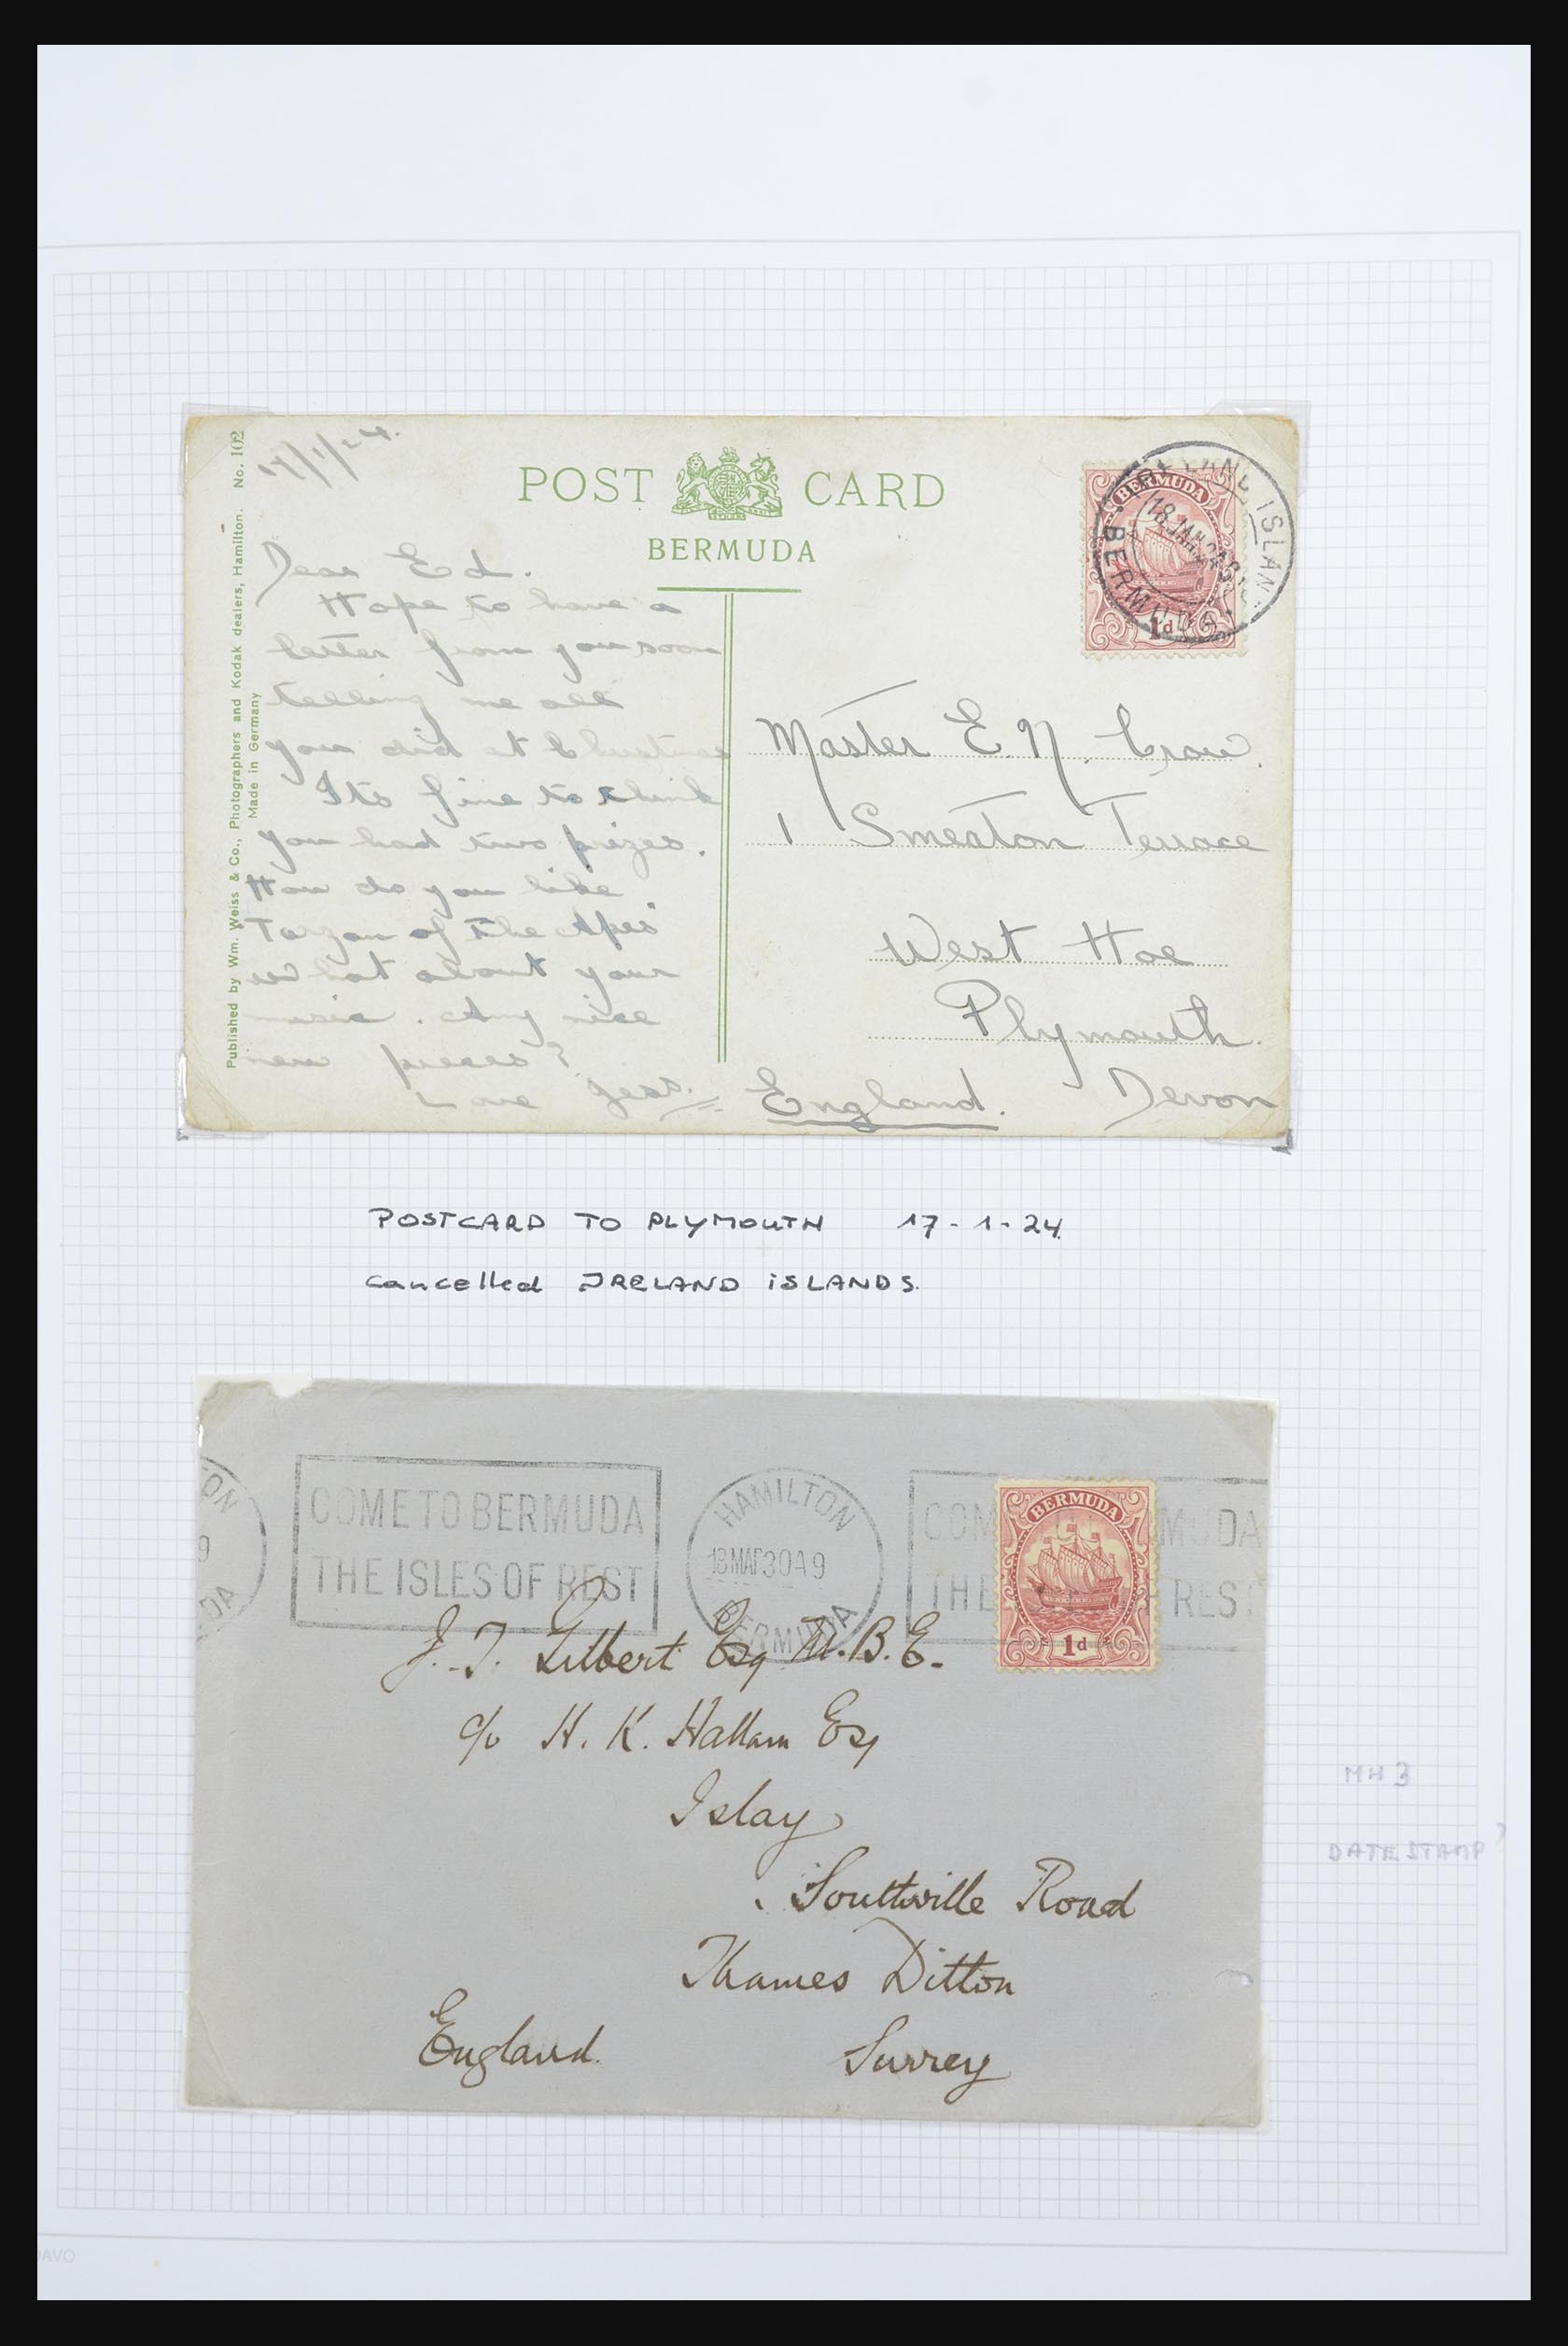 17/1/24.
POST CARD
BERMUDA
Published by Wm. Weiss & Co., Photographers and Kodak dealers, Hamilton. No. 102
Made in Germany
Dear Ed.
Hope to have a
letter from you soon
telling me all
you did at Christmas
Its fine to think
you had two prizes.
How do you like
"Tarzan of the Apes"
what about your
music. Any nice
new pieces?
Love Jess.
BERMUDA
1d
ISLAN
18 JAN 24
BERMUDA
Master E. N. Crow.
1 Smeaton Terrace
West Hoe
Plymouth.
England. Devon
POSTCARD TO PLYMOUTH 17-1-24
cancelled IRELAND ISLANDS.
ON
9
DA
COME TO BERMUDA
THE ISLES OF REST
HAMILTON
18 MAR 30 A9
BERMUDA
COM MUDA
THE REST
BERMUDA
1d
J. T. Gilbert Esq M.B.E.
c/o H. K. Hallam Esq
Islay
Southville Road
Thames Ditton
England. Surrey
MH3
DATESTAMP?
DAVO